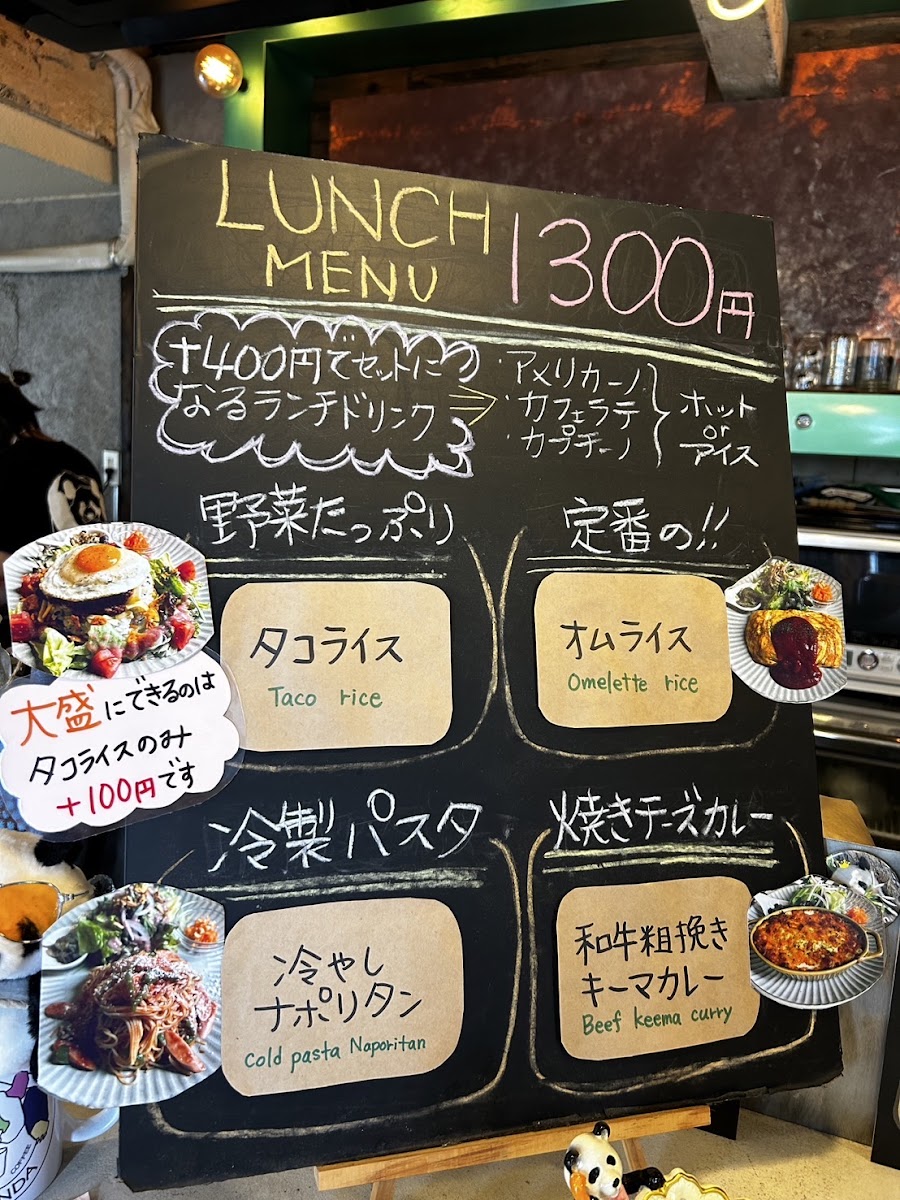 LUNCH
MENU
1300円
+400円でセットに
なるランチドリンク
・アメリカーノ
・カフェラテ
・カプチーノ
ホット
or
アイス
野菜たっぷり
タコライス
Taco rice
大盛にできるのは
タコライスのみ
+100円です
定番の!!
オムライス
Omelette rice
冷製パスタ
冷やし
ナポリタン
cold pasta Naporitan
焼きチーズカレー
和牛粗挽き
キーマカレー
Beef keema curry
COFFEE